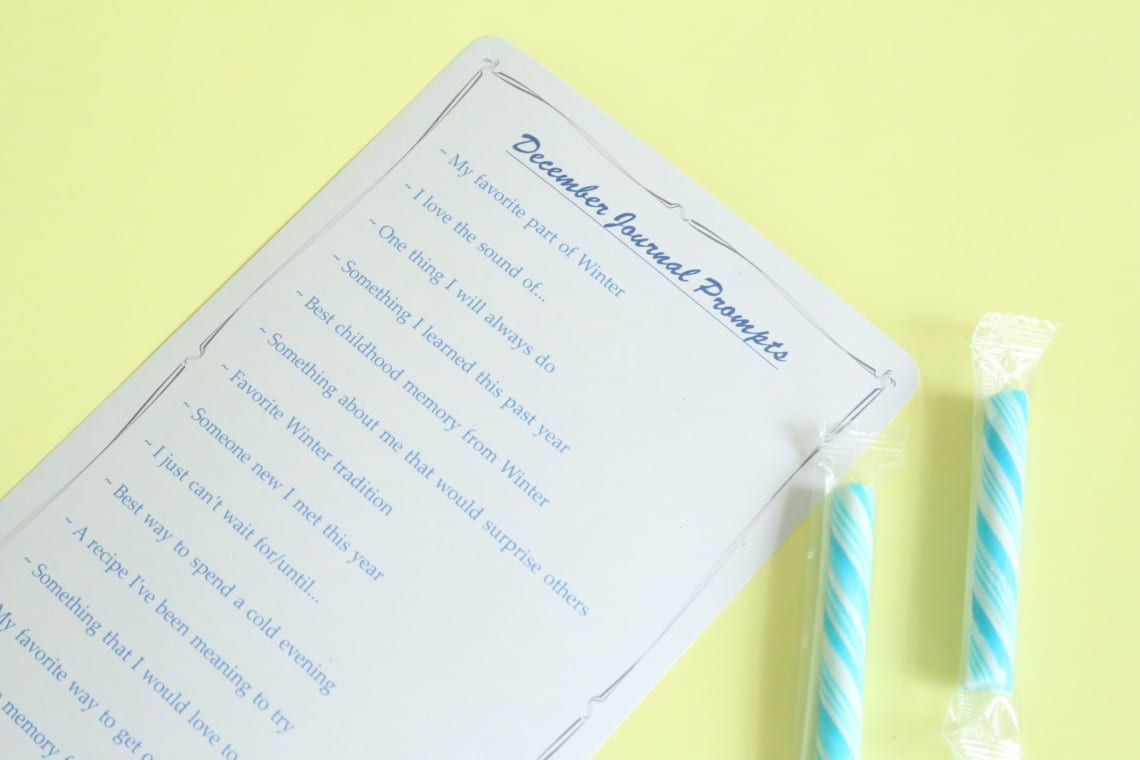 December Journal Prompts
~ My favorite part of Winter
~ I love the sound of...
~ One thing I will always do
~ Something I learned this past year
~ Best childhood memory from Winter
~ Something about me that would surprise others
~ Favorite Winter tradition
~ Someone new I met this year
~ I just can't wait for/until...
~ Best way to spend a cold evening
~ A recipe I've been meaning to try
~ Something that I would love to
My favorite way to get
memory